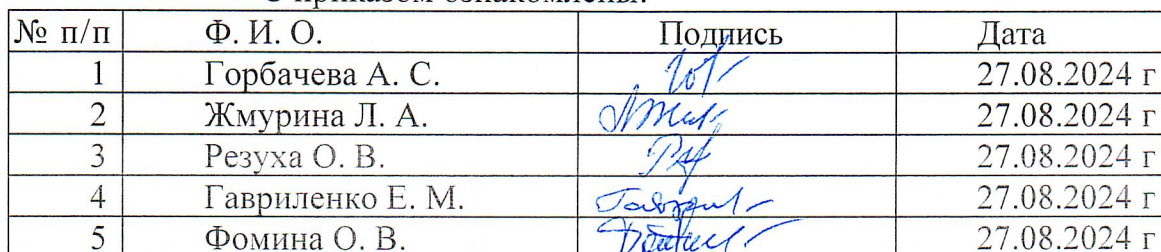 С приказом ознакомлены:
№ п/п Ф. И. О. Подпись Дата
1 Горбачева А. С. 27.08.2024 г
2 Жмурина Л. А. 27.08.2024 г
3 Резуха О. В. 27.08.2024 г
4 Гавриленко Е. М. 27.08.2024 г
5 Фомина О. В. 27.08.2024 г